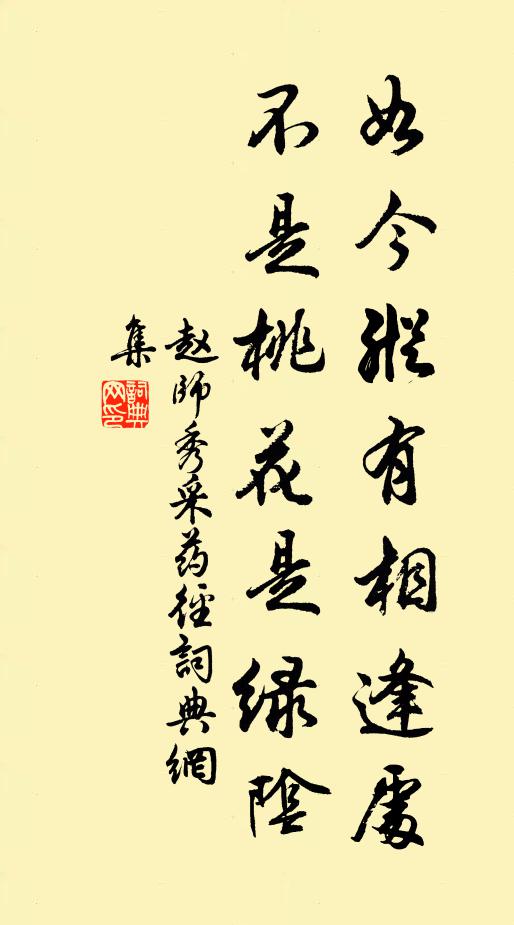 如今縱有相逢處
不是桃花是緑陰
趙師秀采药徑詞典網
集
詞典網印